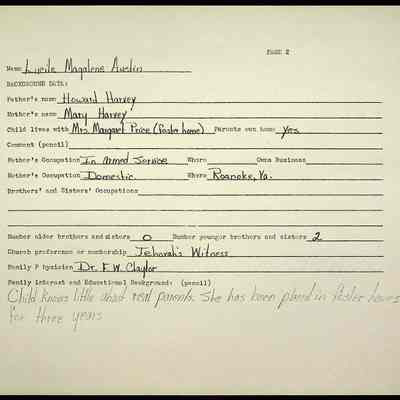 PAGE 2
Name Lucile Magalene Austin
BACKGROUND DATA:
Father's name Howard Harvey
Mother's name Mary Harvey
Child lives with Mrs. Margaret Price (foster home) Parents own home Yes
Comment (pencil)
Father's Occupation In Armed Service Where Own Business
Mother's Occupation Domestic Where Roanoke, Va.
Brothers' and Sisters' Occupations
Number older brothers and sisters 0 Number younger brothers and sisters 2
Church preference or membership Jehovah's Witness
Family Physician Dr. F. W. Claytor
Family interest and Educational Background: (pencil)
Child knows little about real parents. She has been placed in foster homes
for three years